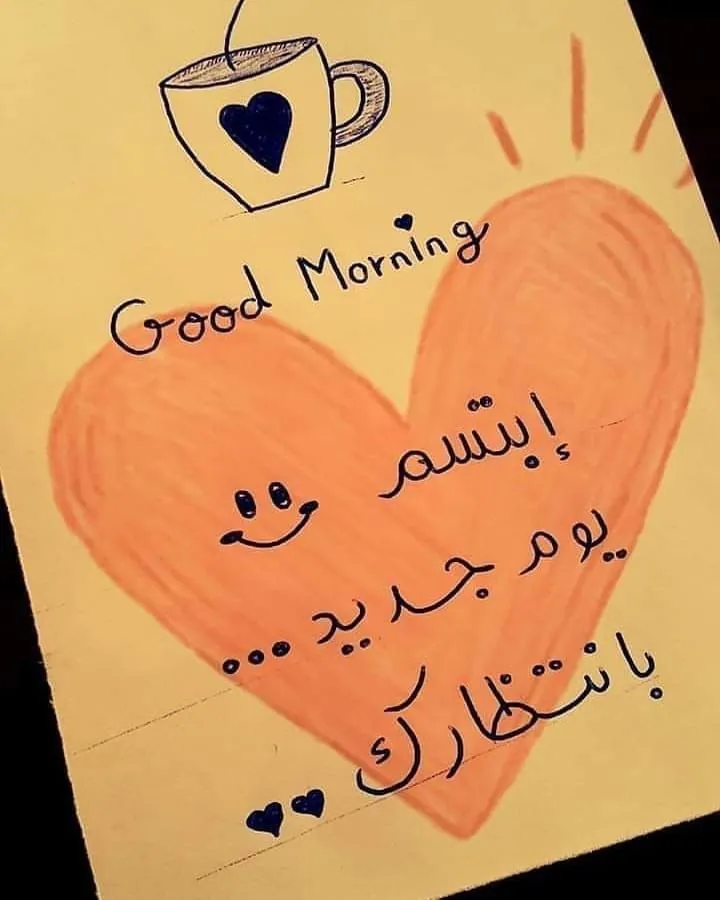 Good Morning
إبتسم
يوم جديد...
بانتظارك